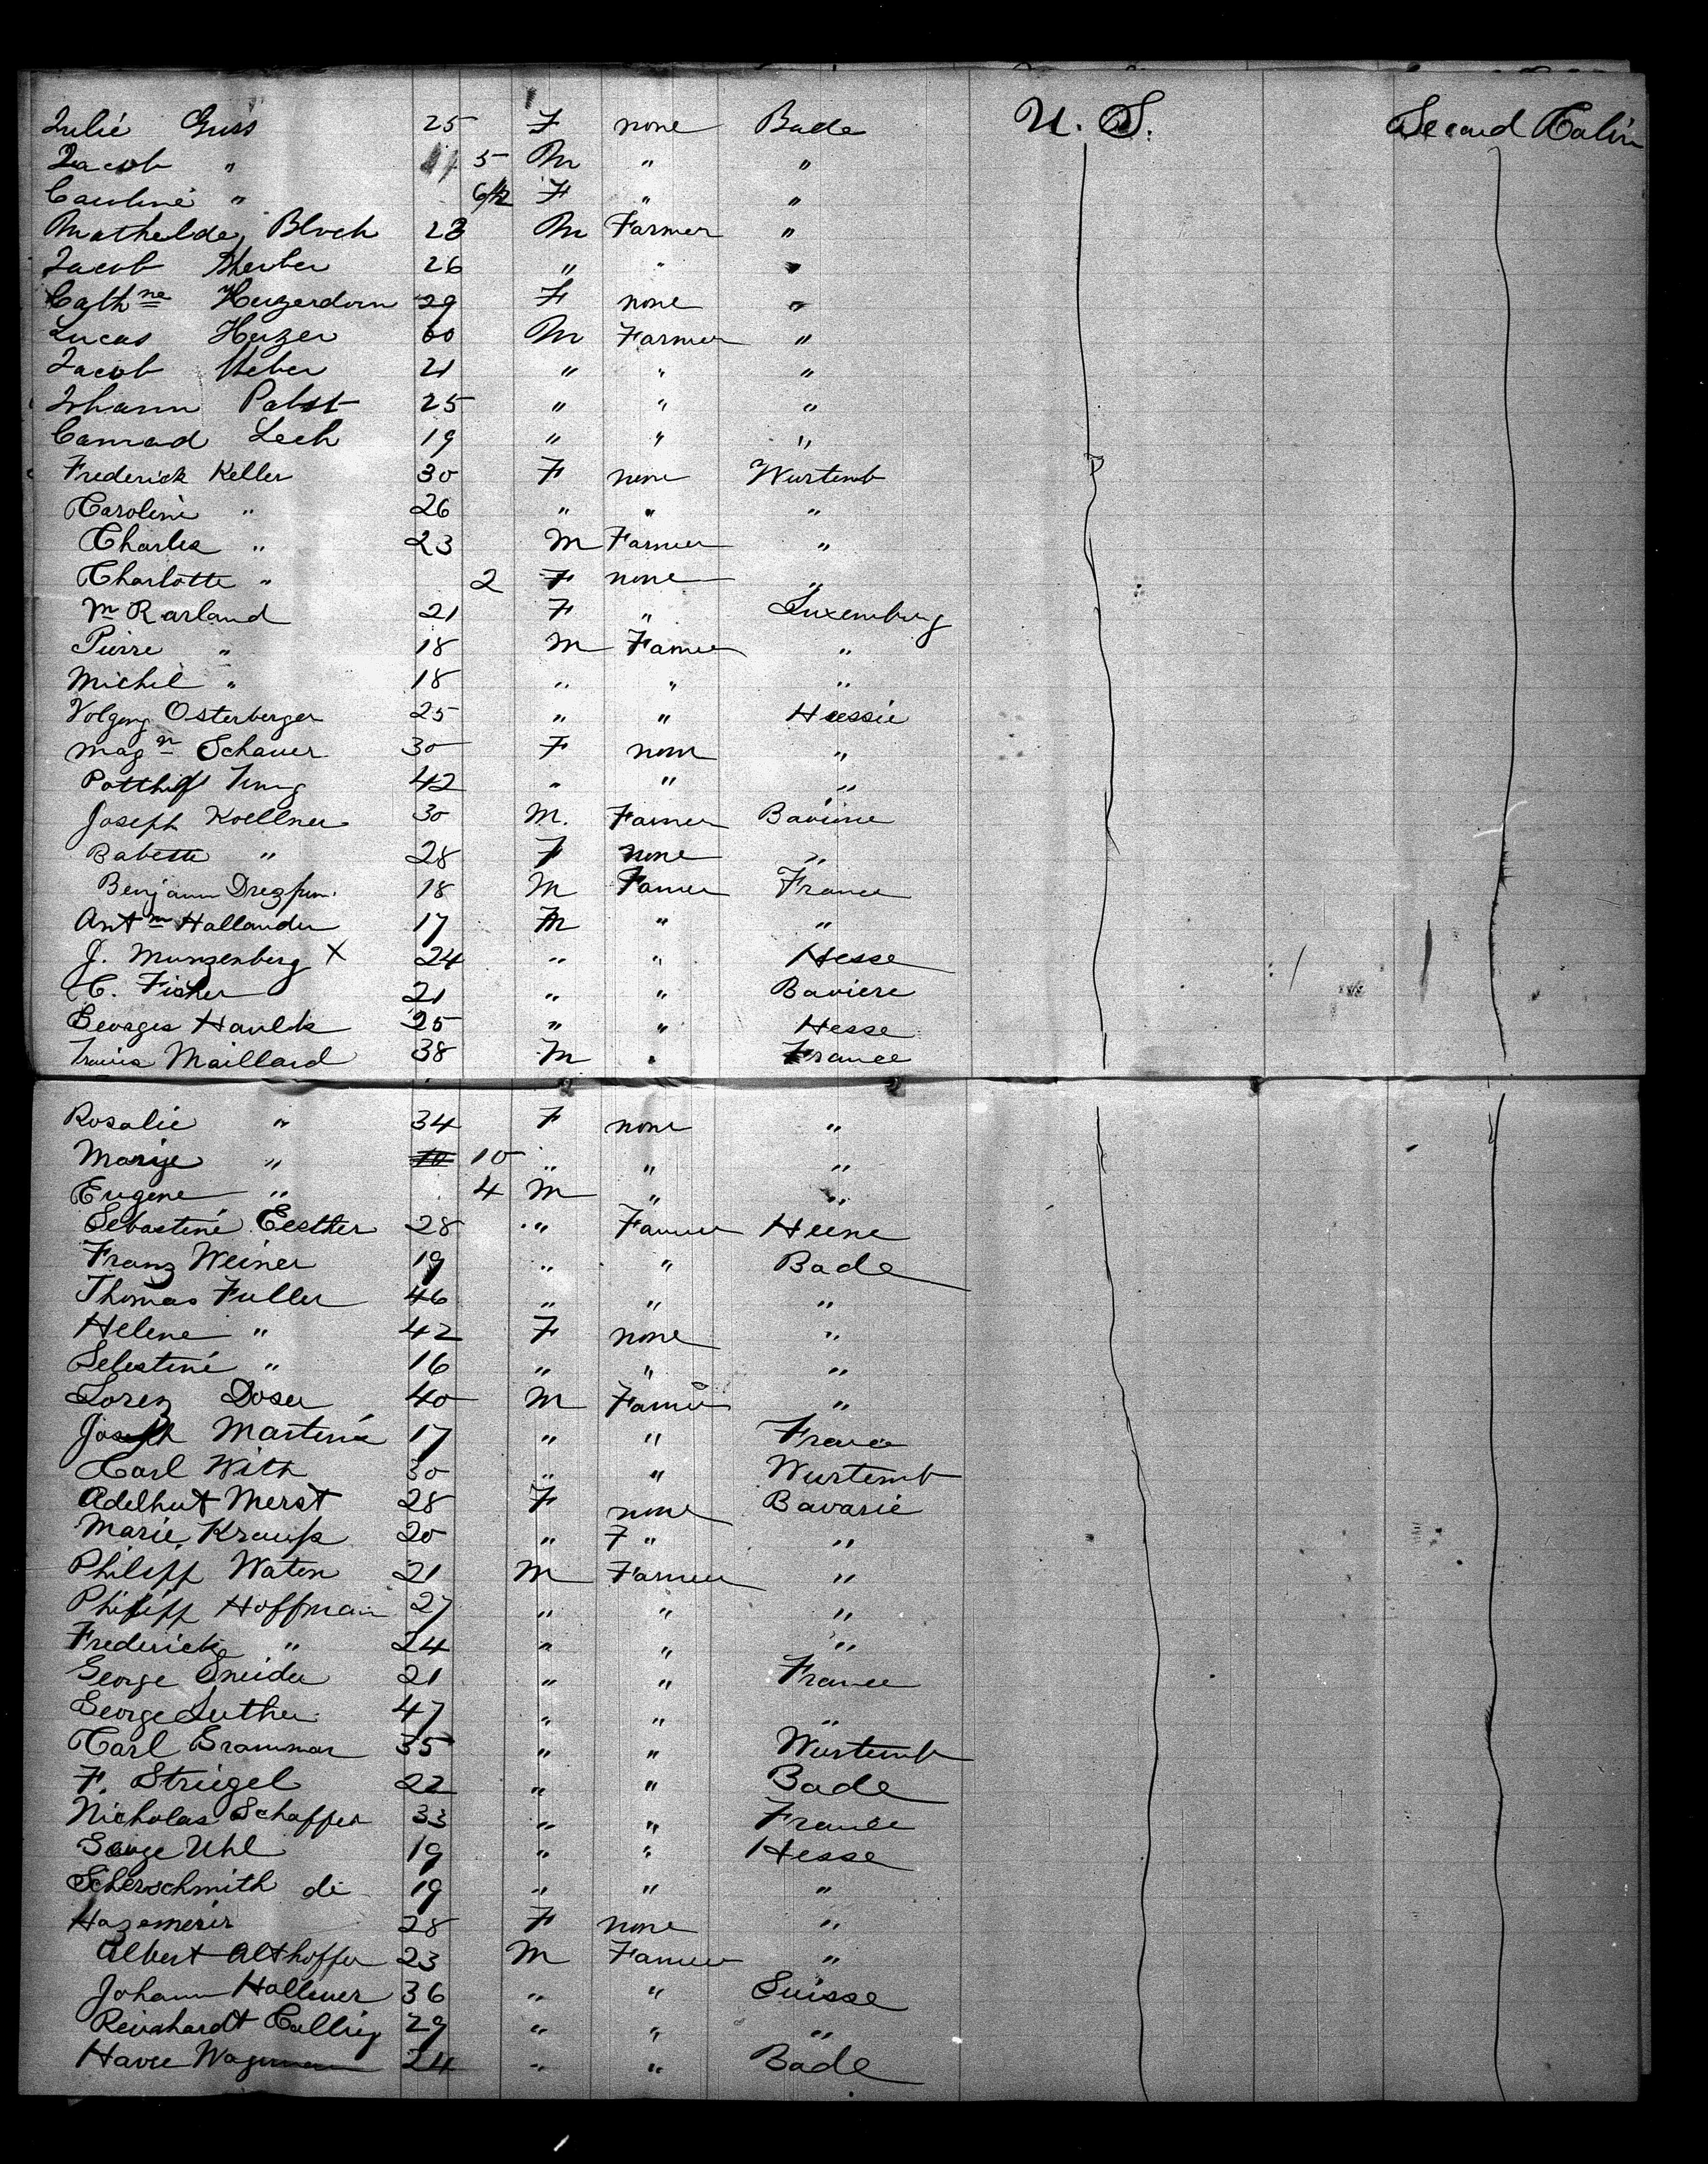 Julié Guss 25 F none Bade U. S. Second Cabin
Jacob " 5 M " "
Caroliné " 6/12 F " "
Mathelde, Bloch 23 M Farmer "
Jacob 26 " " "
Cath ne Herzerdorn 29 F none "
Lucas Herzer 60 M Farmer "
Jacob Weber 21 " " "
Johann Pabst 25 " " "
Conrad Lech 19 " " "
Frederick Keller 30 F none Wurtemb
Caroline " 26 " " "
Charles " 23 M Farmer "
Charlotte " 2 F none "
M Rarland 21 F " Luxemburg
Pierre " 18 M Farmer "
Michel " 18 " " "
Volgang Osterberger 25 " " Hessie
Mag n Schauer 30 F none "
42 " " "
Joseph Koellner 30 M. Farmer Baviere
Babette " 28 F none "
Benjamin 18 M Farmer France
Ant m Hollander 17 M " "
J. Munzenberg X 24 " " Hesse
C. Fisher 21 " " Baviere
Georges Haulk 25 " " Hesse
Maillard 38 M " France
Rosalie " 34 F none "
Marije " 10 " " "
Eugene " 4 M " "
Sebastiné Eestter 28 " Farmer
Franz Weiner 19 " " Bade
Thomas Fuller 46 " " "
Helene " 42 F none "
Selestiné " 16 " " "
Lorenz Doser 40 M Farmer "
Joseph Martina 17 " " France
Carl With 30 " " Wurtemb
Adelhut Merst 28 F none Bavarie
Marie Krauss 20 " F " "
Philipp Waton 21 M Farmer "
Philipp Hoffman 27 " " "
Frederick " 24 " " "
George Sneider 21 " " France
George Luther 47 " " "
Carl Grammar 35 " " Wurtemb
F. Striegel 22 " " Bade
Nicholas Schaffer 33 " " France
Uhl 19 " " Hesse
Scherschmith de 19 " " "
Hazemerir 28 F none "
Albert Althoffer 23 M Farmer "
Johann Hollener 36 " " Suisse
Reinhardt Colling 29 " " "
24 " " Bade